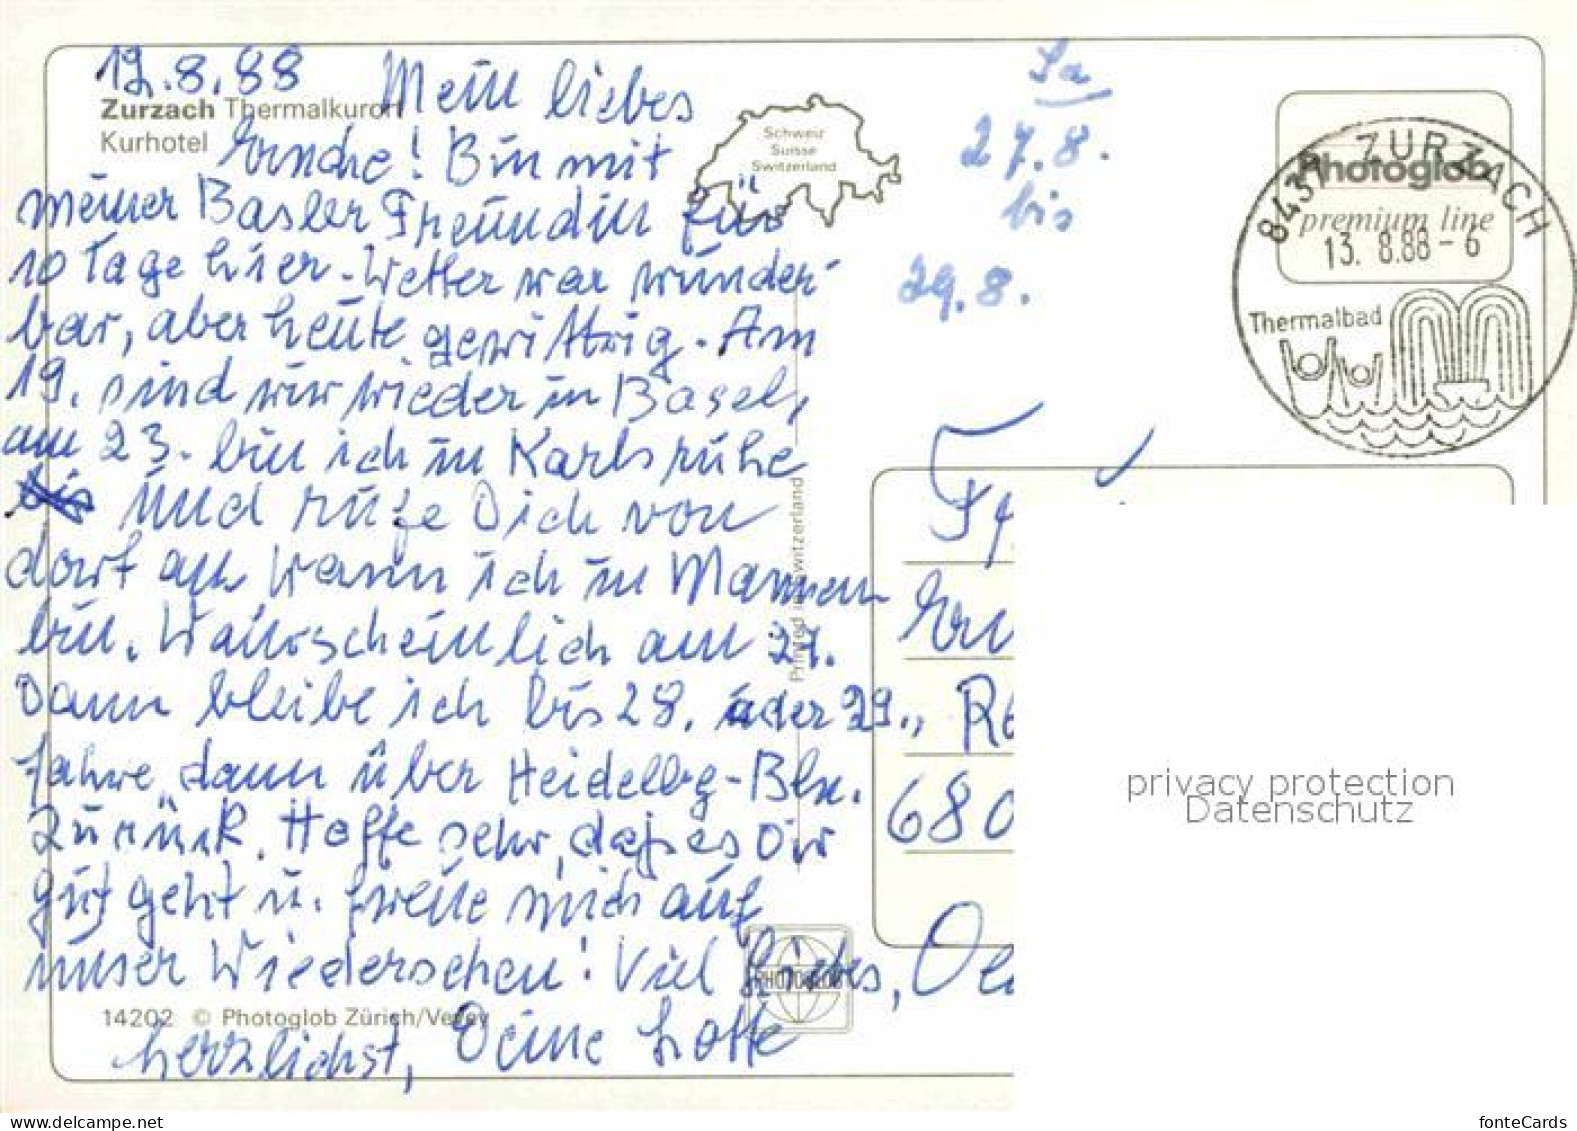 12.8.88 Mein liebes
Zurzach Thermalkurort
Kurhotel
! Bin mit
meiner Basler Freundin für
10 Tage hier - Wetter war wunder-
bar, aber heute gewittrig. Am
19. sind wir wieder in Basel,
am 23. bin ich in Karlsruhe
bis und rufe Dich von
dort an wann ich in
bin. Wahrscheinlich am 27.
Dann bleibe ich bis 28. oder 29.,
fahre dann über Heidelbg-
zurück. Hoffe sehr, daß es Dir
gut geht u. freue mich auf
unser Wiedersehen! Viel Liebes,
14202 © Photoglob Zürich/Vevey
herzlichst, Deine Lotte
Schweiz
Suisse
Switzerland
Printed in Switzerland
PHOTOGLOB
Sa
27.8.
bis
29.8.
Photoglob
premium line
8437 ZURZACH
13. 8.88 - 6
Thermalbad
680
privacy protection
Datenschutz
www.delcampe.net
fonteCards